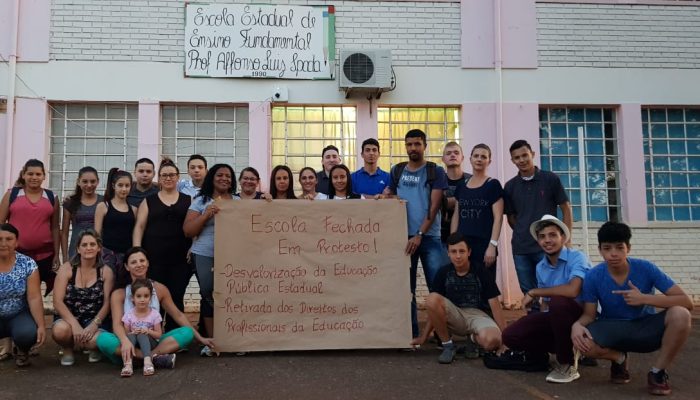 Escola Estadual de
Ensino Fundamental
Prof Affonso Luiz Spada
1990
Escola Fechada
Em Protesto!
- Desvalorização da Educação
Pública Estadual
- Retirada dos Direitos dos
Profissionais da Educação
NEW YORK
CITY